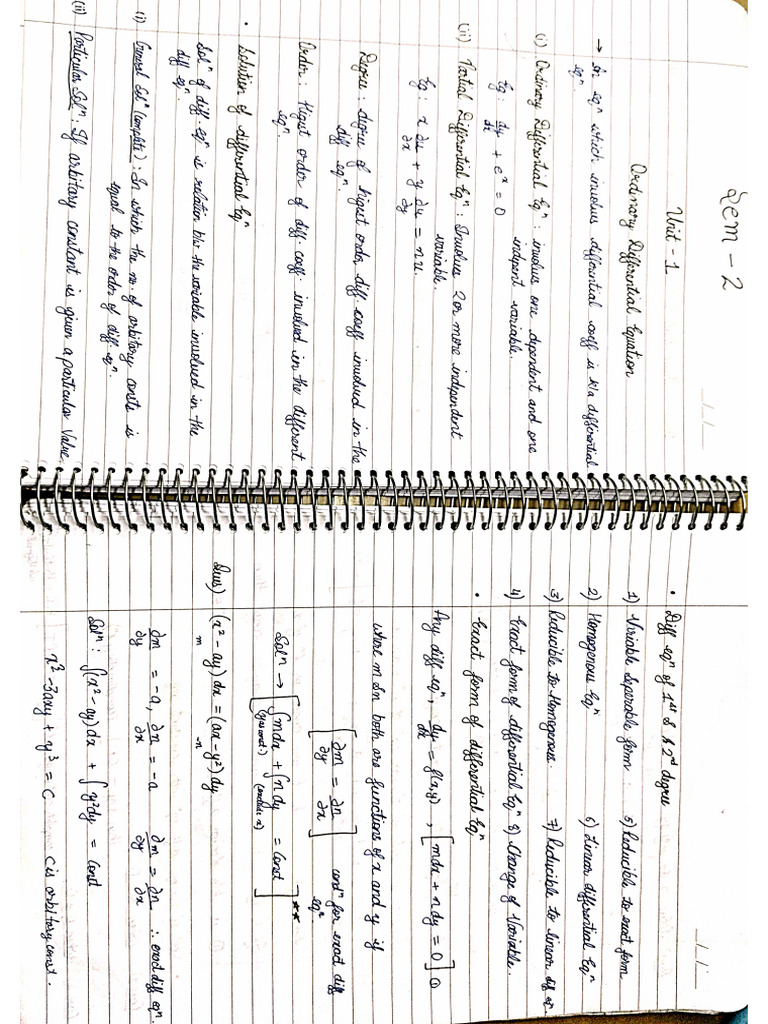 Sem - 2
Unit - 1
Ordinary Differential Equation
→ In eqⁿ which involves differential coeff is k/a differential
eqⁿ.
(i) Ordinary Differential Eqⁿ : involves one dependent and one
indepent variable.
Eg: dy/dx + eˣ = 0
(ii) Partial Differential Eqⁿ : Involves 2 or more independent
variable.
Eg: x ∂u/∂x + y ∂u/∂y = nu.
Degree : degree of higest order diff. coeff involved in the
diff eqⁿ.
Order : Higest order of diff. coeff. involved in the different
eqⁿ.
• Solution of differential Eqⁿ
Solⁿ of diff. eqⁿ is relation b/w the variable involved in the
diff. eqⁿ.
(i) General Solⁿ (complete) : In which the no. of arbitary consts is
equal to the order of diff. eqⁿ.
(ii) Particular Solⁿ : If arbitary constant is given a particular value.
• Diff eqⁿ of 1ˢᵗ & 2ⁿᵈ degree
1) Variable seperable form : 5) Reducible to exact form
2) Homogenous Eqⁿ 6) Linear differential Eqⁿ
3) Reducible to Homogenous. 7) Reducible to linear dif eⁿ.
4) Exact form of differential Eqⁿ 8) Change of Variable.
• Exact form of differential Eqⁿ
Any diff eqⁿ, dy/dx = f(x,y) , [mdx + ndy = 0] ①
where m & n both are functions of x and y if
[∂m/∂y = ∂n/∂x] condⁿ for exact diff
eqⁿ
Solⁿ → [∫mdx + ∫ndy = const] **
(y is const.) (exclude x)
Ques) (x² - ay)dx = (ax - y²)dy
m -n
∂m/∂y = -a, ∂n/∂x = -a ∂m/∂y = ∂n/∂x ∴ exact diff eqⁿ.
Solⁿ : ∫(x² - ay)dx + ∫y²dy = const
x³ - 3axy + y³ = C C is arbitary const.